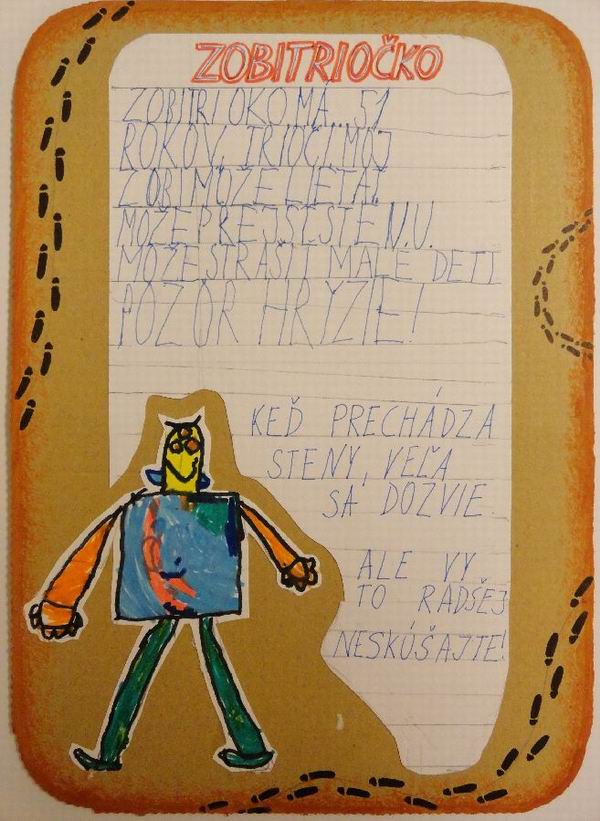 ZOBITRIOČKO
ZOBITRIOKO MÁ... 51
ROKOV. TRIOČI MÔJ
ZOBI MOŽE LIETAŤ.
MOŽE PREJSŤ STENU.
MOŽE STRAŠIŤ MALÉ DETI
POZOR HRYZIE!
KEĎ PRECHÁDZA
STENY, VEĽA
SA DOZVIE.
ALE VY
TO RADŠEJ
NESKÚŠAJTE!